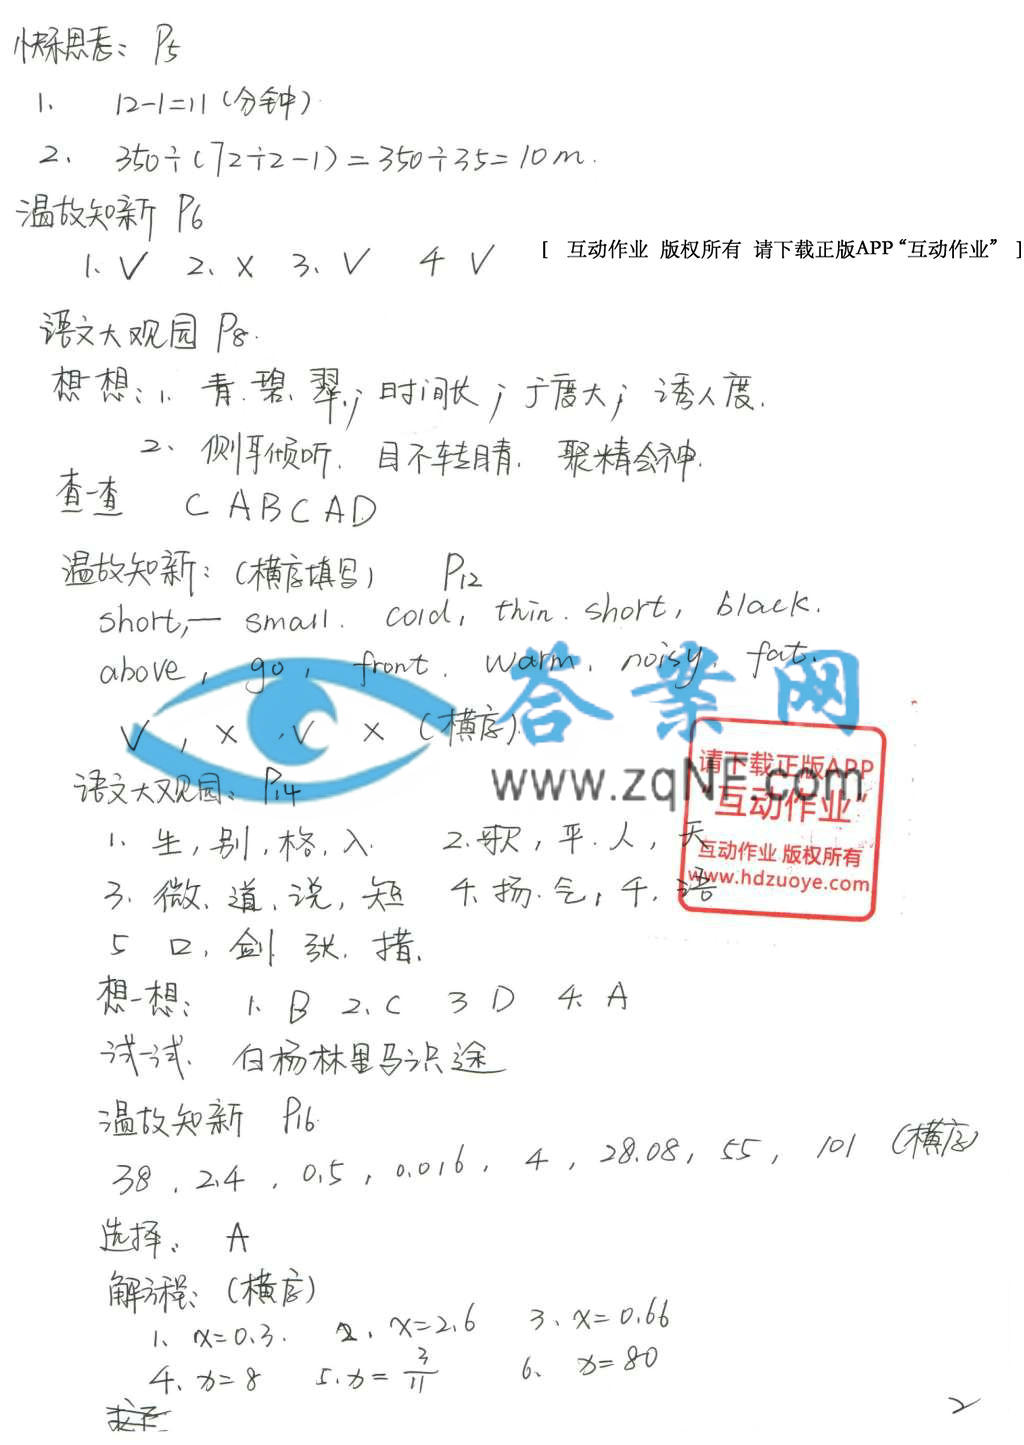 快乐思考：P5
1、 12-1=11（分钟）
2、 350÷(72÷2-1)=350÷35=10m.
温故知新 P6
1、√ 2、× 3、√ 4 √
[ 互动作业 版权所有 请下载正版APP“互动作业” ]
语文大观园 P8.
想一想：1. 青.碧.翠.；时间长；广度大；诱人度.
2、侧耳倾听. 目不转睛. 聚精会神.
查一查 C A B C A D
温故知新：（横序填写） P12
short,— small. cold, thin. short, black.
above, go, front. warm. noisy, fat.
√, × , √ × （横序）.
答案网
www.zqNF.com
请下载正版APP
“互动作业”
互动作业 版权所有
www.hdzuoye.com
语文大观园：P14
1. 生,别,格,入. 2.歌,平.人,天
3. 微、道、说,短 4.扬.气,千.语
5 口,剑 张.措.
想一想： 1. B 2、C 3 D 4. A
试一试. 白杨林里马识途
温故知新 P16
38 , 2.4 , 0.5 , 0.016 , 4 , 28.08 , 55 , 101 （横序）
选择： A
解方程：（横序）
1、x=0.3. 2、x=2.6 3、x=0.66
4、x=8 5.x=3/11 6、x=80
2